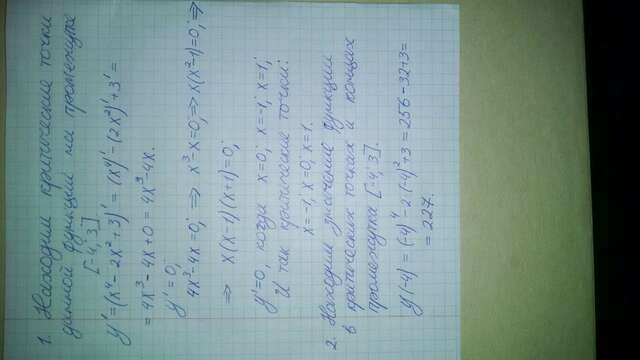 1. Находим критические точки
данной функции на промежутке
[-4; 3]
y' = (x⁴ - 2x² + 3)' = (x⁴)' - (2x²)' + 3' =
= 4x³ - 4x + 0 = 4x³ - 4x.
y' = 0;
4x³ - 4x = 0; ⇒ x³ - x = 0; ⇒ x(x² - 1) = 0; ⇒
⇒ x(x - 1)(x + 1) = 0;
y' = 0, когда x = 0; x = -1; x = 1;
И так критические точки:
x = -1, x = 0, x = 1.
2. Находим значение функции
в критических точках и концах
промежутка [-4; 3].
y(-4) = (-4)⁴ - 2·(-4)² + 3 = 256 - 32 + 3 =
= 227.